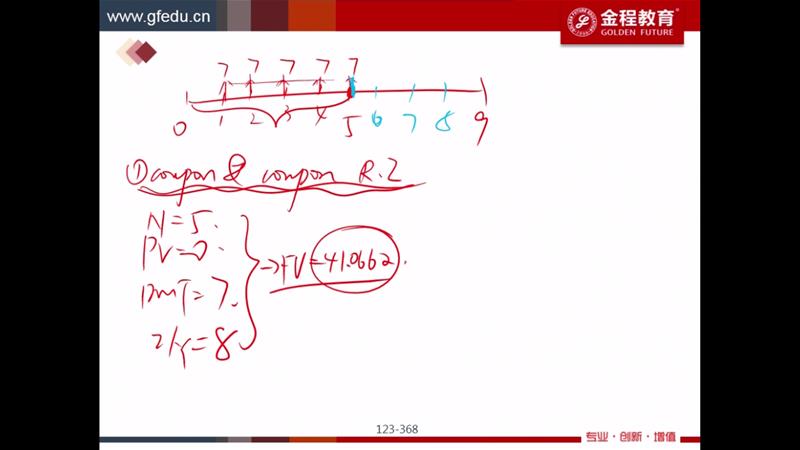 www.gfedu.cn
金程教育
GOLDEN FUTURE
7 7 7 7 7
0 1 2 3 4 5 6 7 8 9
① coupon & coupon R.I
N=5.
PV=0.
PMT=7.
I/Y=8
→FV=41.0662.
123-368
专业·创新·增值